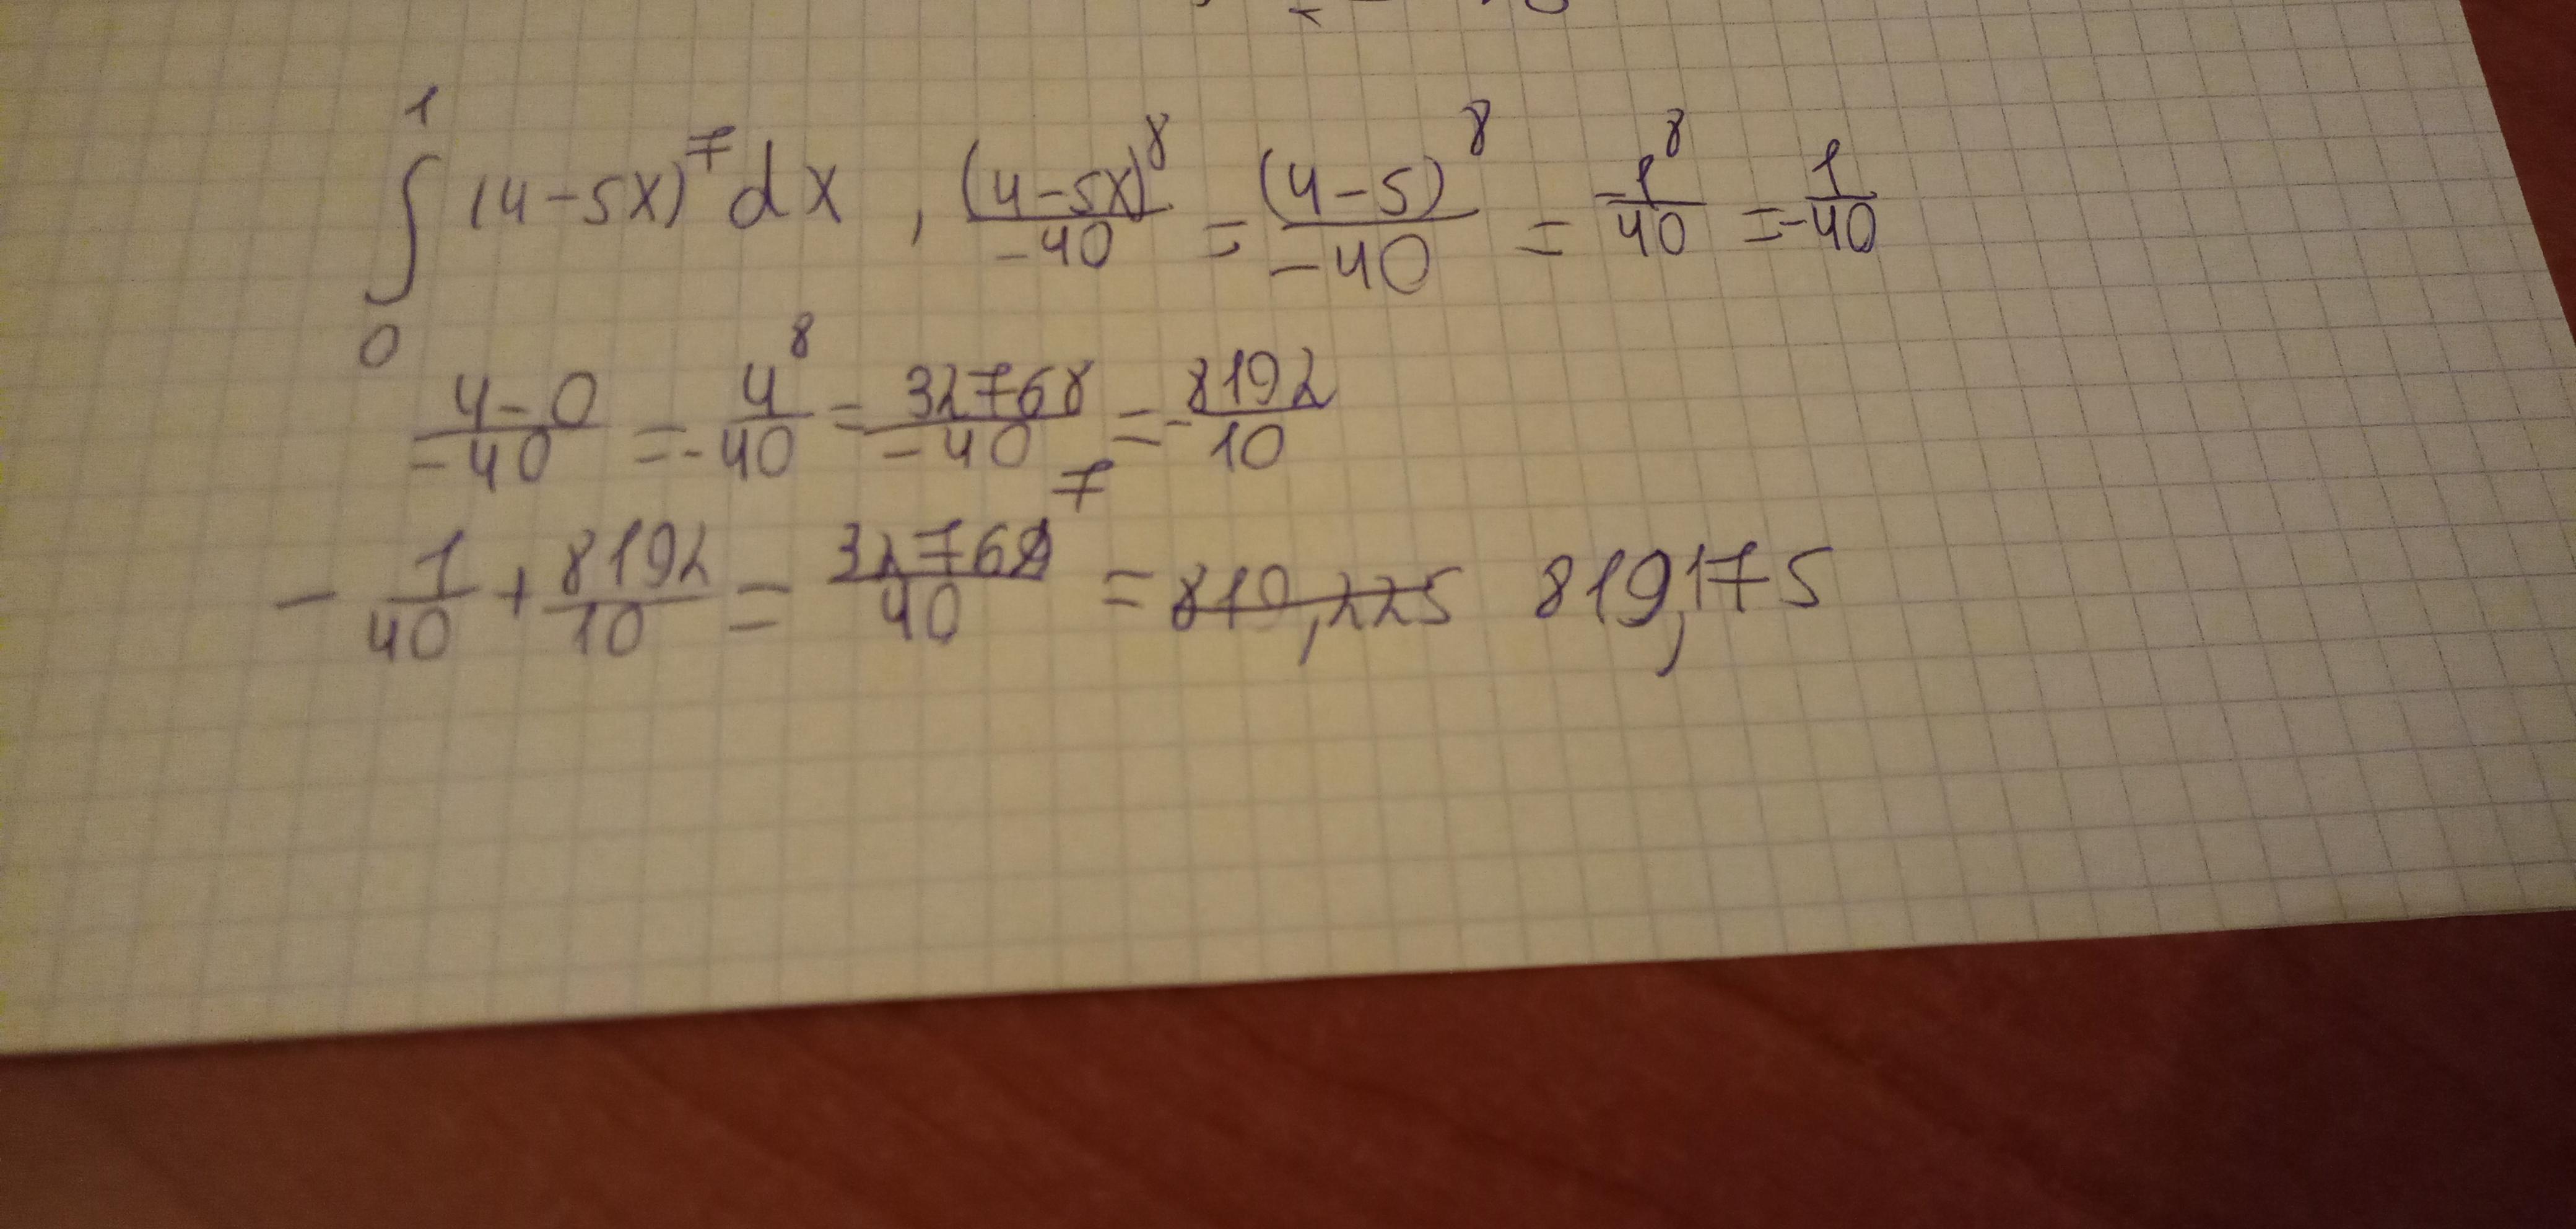 ∫₀¹ (4-5x)⁷ dx , (4-5x)⁸/-40 = (4-5)⁸/-40 = -1⁸/40 = -1/40
4-0/-40 = -4⁸/40 = 32768/-40 = -8192/10
-1/40 + 8192/10 = 32767/40 = 819,225 819,175